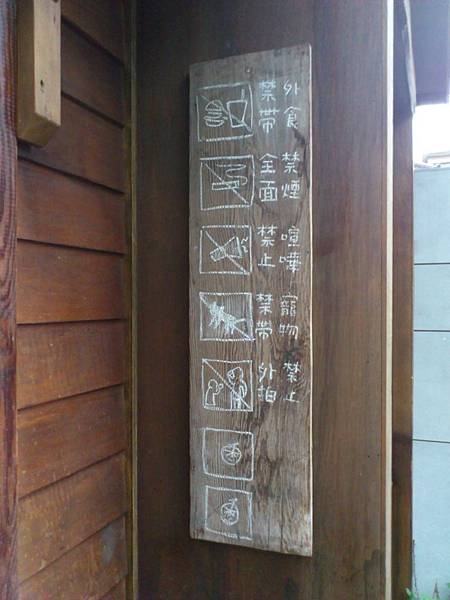 禁帶外食
全面禁煙
禁止喧嘩
禁帶寵物
外拍禁止